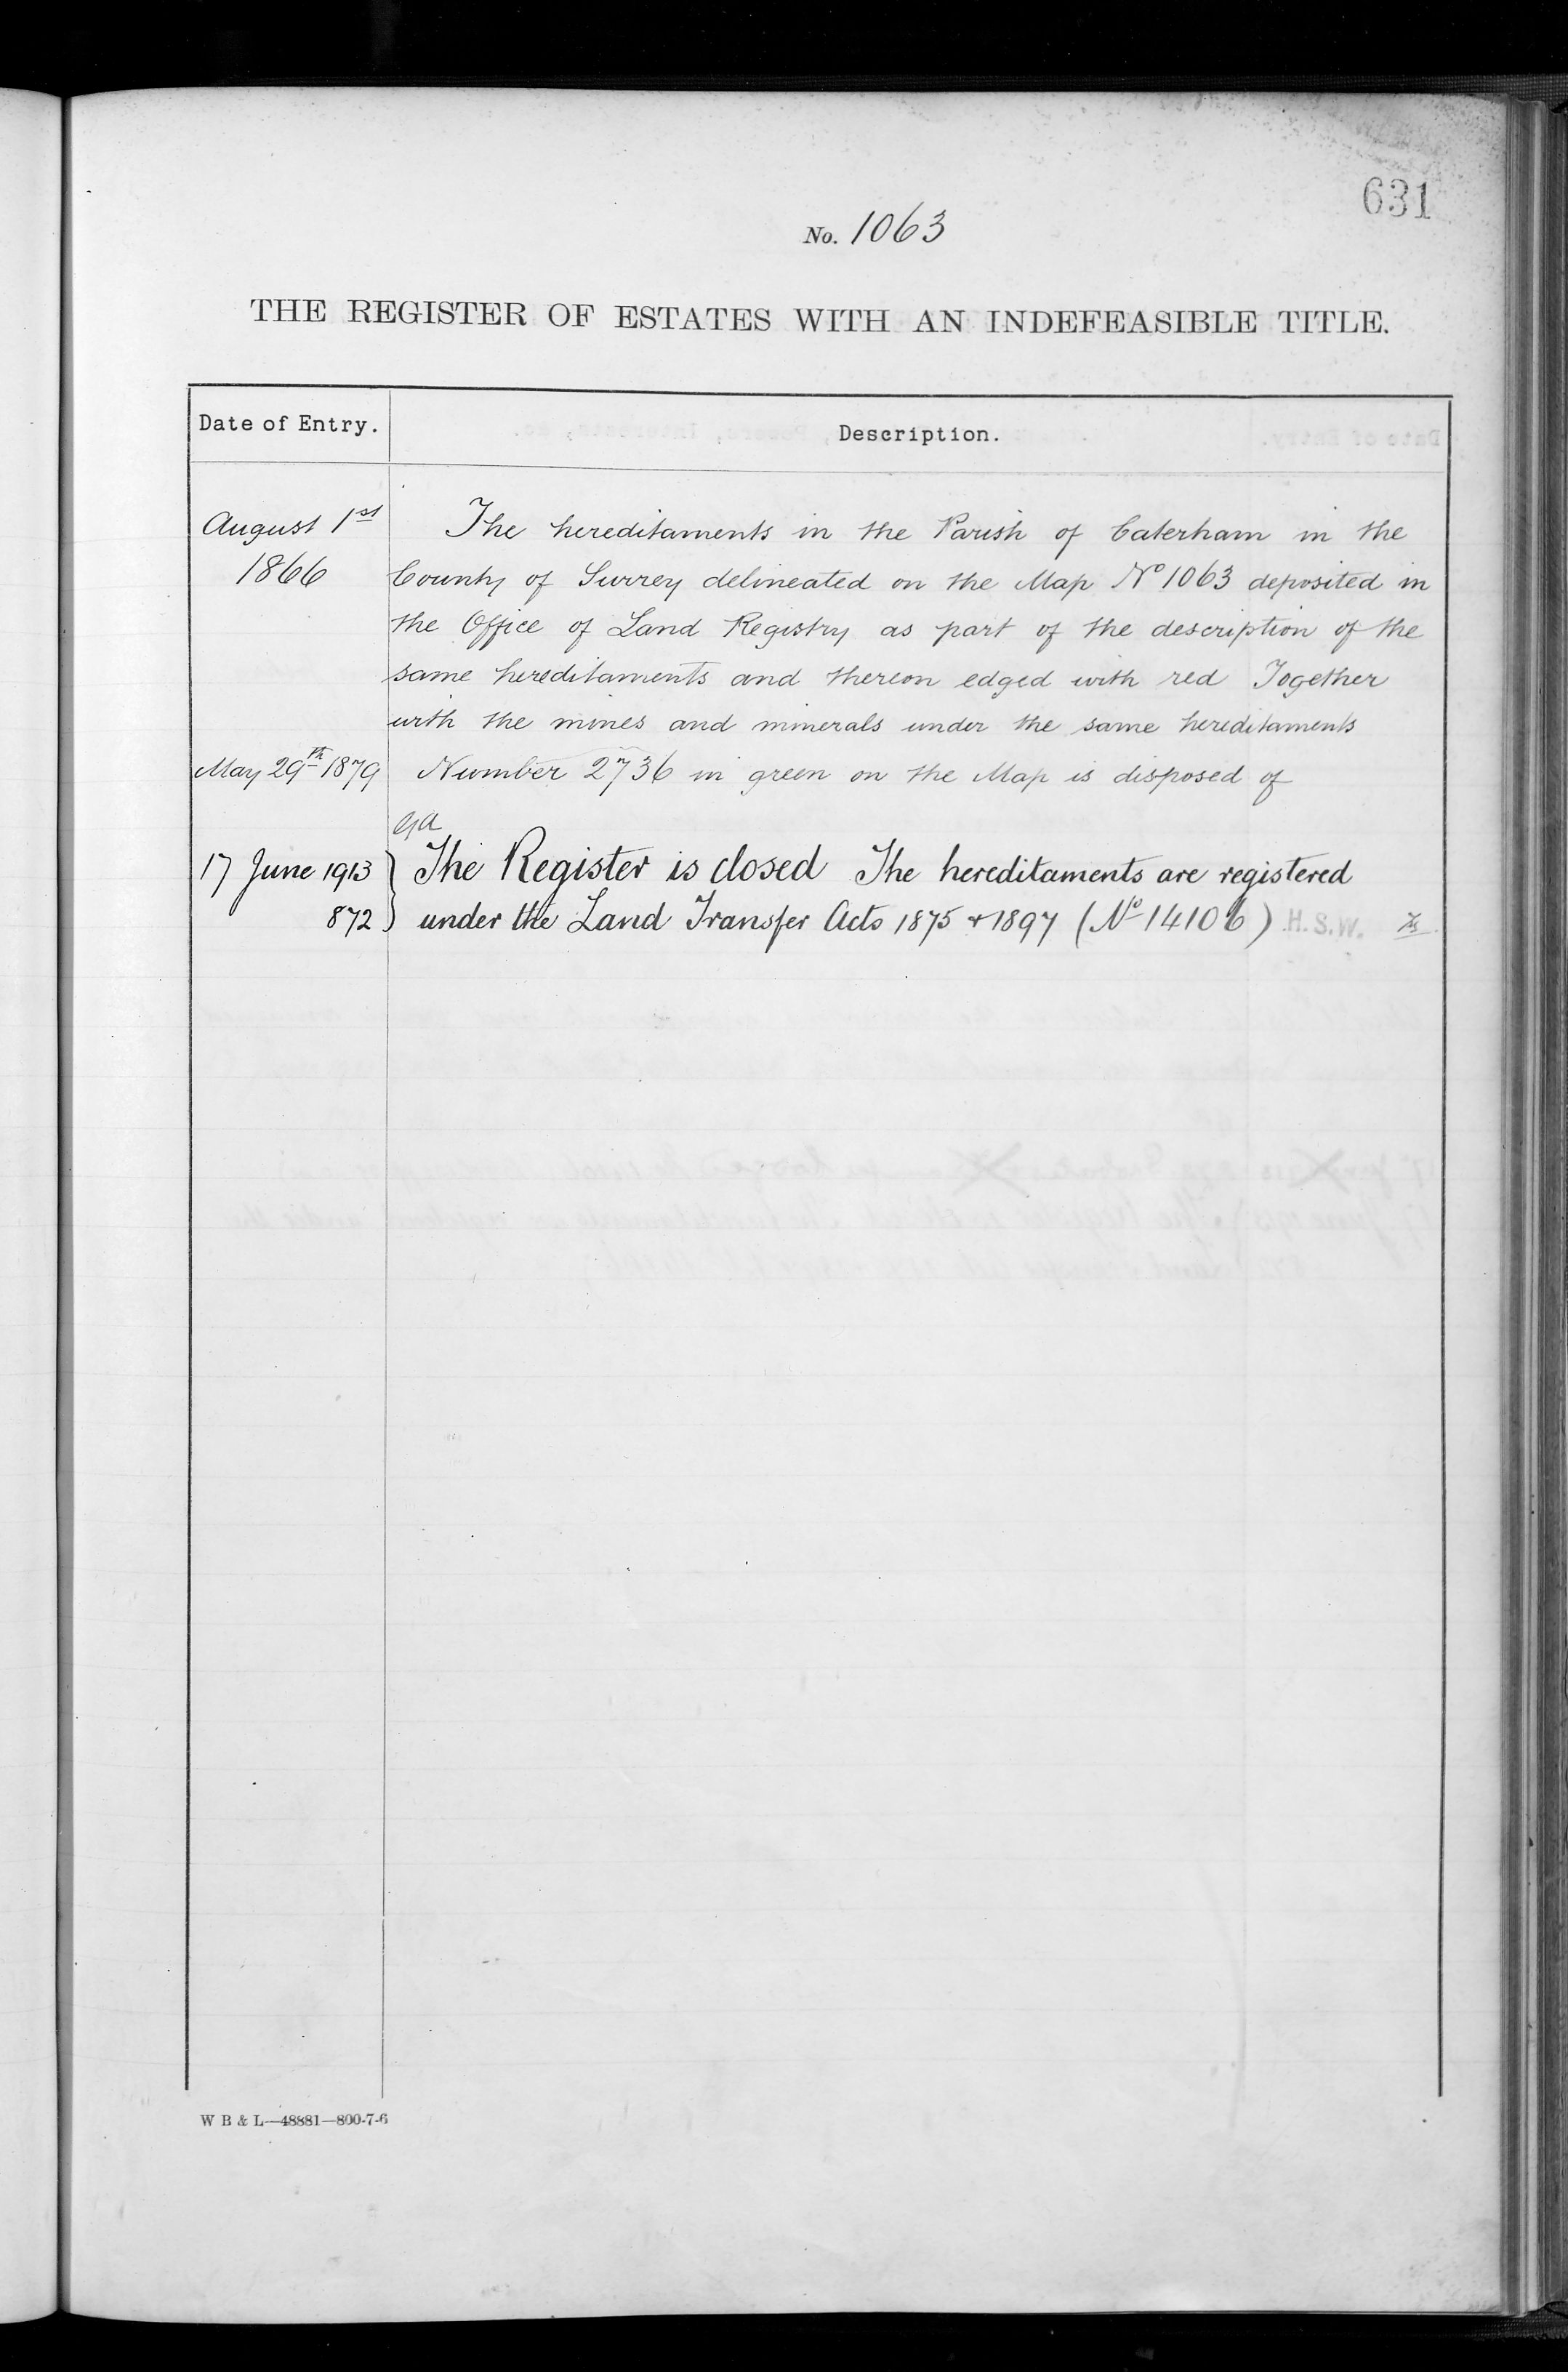 631
No. 1063
THE REGISTER OF ESTATES WITH AN INDEFEASIBLE TITLE.
Date of Entry.
Description.
August 1st
1866
The hereditaments in the Parish of Caterham in the
County of Surrey delineated on the Map No 1063 deposited in
the Office of Land Registry as part of the description of the
same hereditaments and thereon edged with red Together
with the mines and minerals under the same hereditaments
May 29th 1879 Number 2736 in green on the Map is disposed of
17 June 1913 } The Register is closed The hereditaments are registered
872 } under the Land Transfer Acts 1875 & 1897 (No 14106) H.S.W.
W B & L—48881—800-7-6